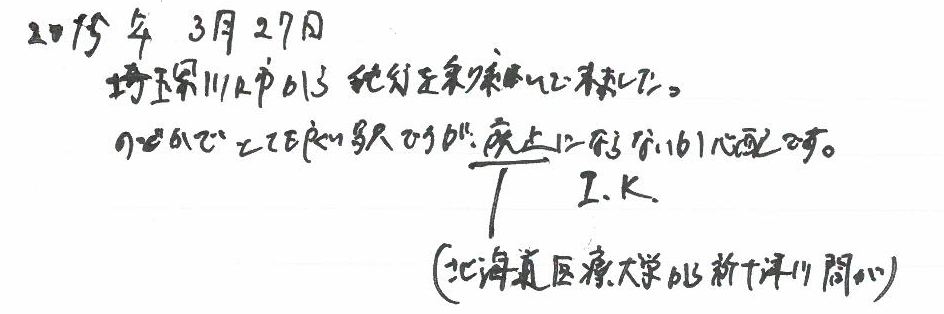 2015年 3月27日
埼玉県川口市から 純行を乗り継いで来ました。
のどかでとても良い駅ですが、廃止にならないか心配です。
I.K.
(北海道医療大学から新十津川間が)